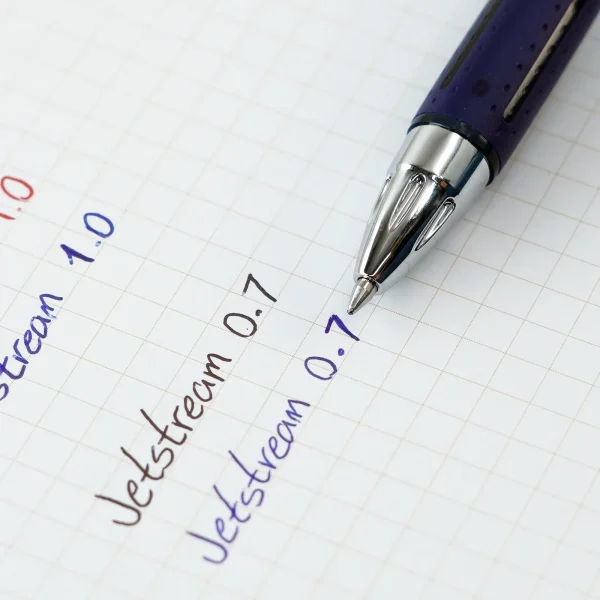 1.0
stream 1.0
Jetstream 0.7
Jetstream 0.7